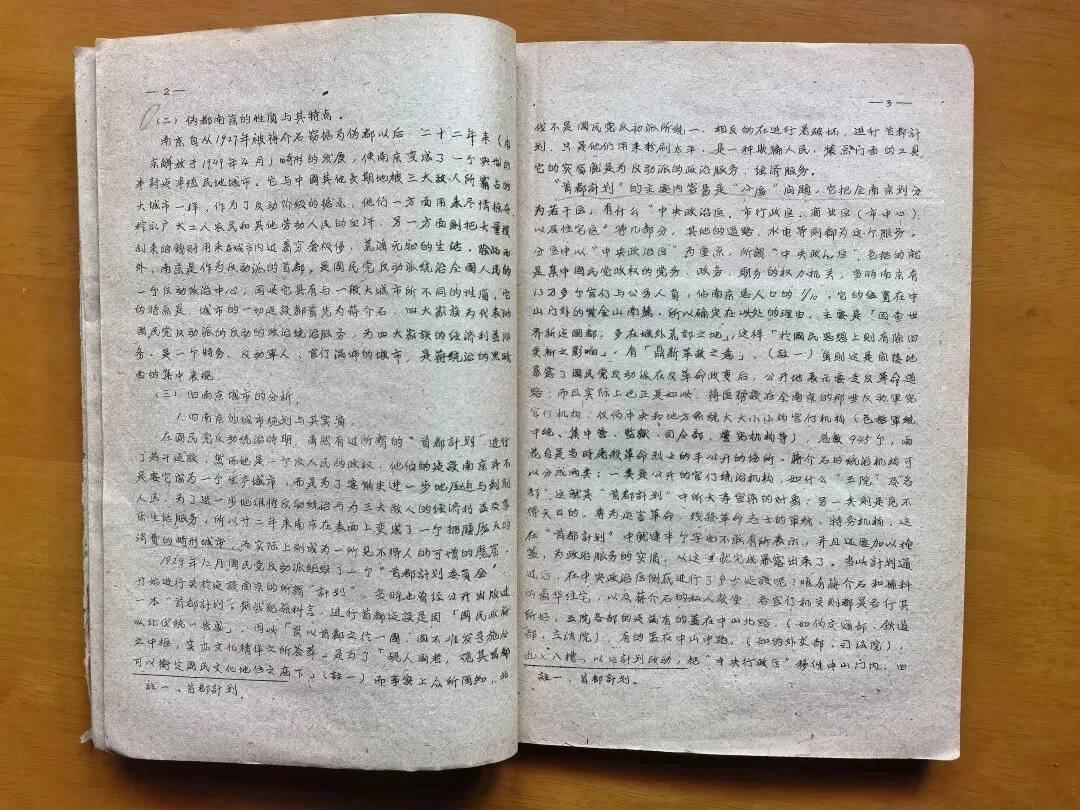 — 2 —
(二) 伪都南京的性质与其特点。
南京自从1927年被蒋介石窃据为伪都以后,二十二年来(南
京解放于1949年4月)畸形的发展,使南京变成了一个典型的
半封建半殖民地城市。它与中国其他长期地被三大敌人所霸占的
大城市一样,作为了反动阶级的据点,他们一方面用来尽情掠夺,
榨取广大工人农民和其他劳动人民的血汗,另一方面则把大量搜
刮来的钱财用来在城市内过着穷奢极侈,荒淫无耻的生活。除此而
外,南京是作为反动派的首都。是国民党反动派统治全国人民的
一个反动政治中心,因此它具有与一般大城市所不同的性质。它
的特点是,城市的一切建设都首先为蒋介石,四大家族为代表的
国民党反动派的反动的政治统治服务,为四大家族的经济利益服
务,是一个特务、反动军人,官僚满佈的城市,是蒋统治的黑暗
面的集中表现。
(三) 旧南京城市的分析。
1.旧南京的城市规划与其实质。
在国民党反动统治时期,虽然有过所谓的“首都計划”进行
了若干建设,然而她是一个反人民的政权,他们的建设南京并不
是要它成为一个生产城市,而是为了要能更进一步地压迫与剥削
人民,为了进一步地维持反动统治而为三大敌人的经济利益及享
乐生活服务,所以廿二年来南京在表面上变成了一个拥腫庞大的
消费的畸形城市,而实际上则成为一所见不得人的可憎的魔窟。
1929年12月国民党反动派组织了一个“首都計划委员会”,
开始进行关於建设南京的所谓“計划”,当时也曾经公开出版过
一本“首都計划”。据战犯孫科言,进行首都建设是因「国民政府
以北伐统一告成」,因此「良以首都之於一國,固不唯发号施令
之中枢,实亦文化精华之所荟萃」是为了「覘人國者,覘其首都
可以衡定国民文化地位之高下」(註一)而事实上众所周知,北
註一、首都計划.
— 3 —
伐不是国民党反动派所统一,相反的在进行着破坏,进行首都計
划,只是他们用来粉刷太平,是一种欺骗人民,装点门面的工具,
它的实质就是为反动派的政治服务,经济服务。
“首都計划”的主要内容易是“分区”问题,它把全南京划分
为若干区,有什么“中央政治区,市行政区,商业区(市中心)
以及住宅区”等几部分,其他的道路、水电等则都为这个服务。
分区中以“中央政治区”为重点,所谓“中央政治区”包括的就
是集中国民党政权的党务、政务、 务的权力机关,当时南京有
13万多个官僚与公务人员,佔南京总人口的1/10,它的位置在中
山门外的紫金山南麓,所以确定在此处的理由,主要是「因查世
界新造國都,多在城外荒郊之地」,这样「於國民思想上则有除旧
更新之影响」。有「鼎新革故之意」,(註一)虽则这是间接地
暴露了国民党反动派在反革命政变后,公开地表示要走反革命道
路;而且实际上也正是如此,蒋匪移驻在全南京的那些反动军党
官僚机构,仅伪中央和地方系统大大小小的官僚机构(包括军统
中统、集中营、監狱、司令部、僅宪机构等),总数945个,雨
花台是当时屠杀革命烈士的半公开的场所。蒋介石的统治机构可
以分成两类:一类是公开的官僚统治机构,如什么“五院”及各
部”,这就是“首都計划”中所大事渲染的对象;另一类则是见不
得天日的,专为迫害革命,残杀革命志士的军统、特务机构,这
在“首都計划”中就連半个字也不敢有所表示,并且还要加以掩
盖,为政治服务的实质,从这里就完成暴露出来了。当此計划通
过后,在中央政治区倒底进行了多少建设呢?唯有蒋介石和孫科
的豪华住宅,以及蒋介石的私人教堂,各官僚机关则都是各行其
所好,五院各部的建筑有的盖在中山北路,(如伪交通部、铁道
部,立法院),有的盖在中山中路,(如伪外交部,司法院),
乱七八糟,以后計划改动,把“中央行政区”移往中山门内,旧
註一、首都計划。